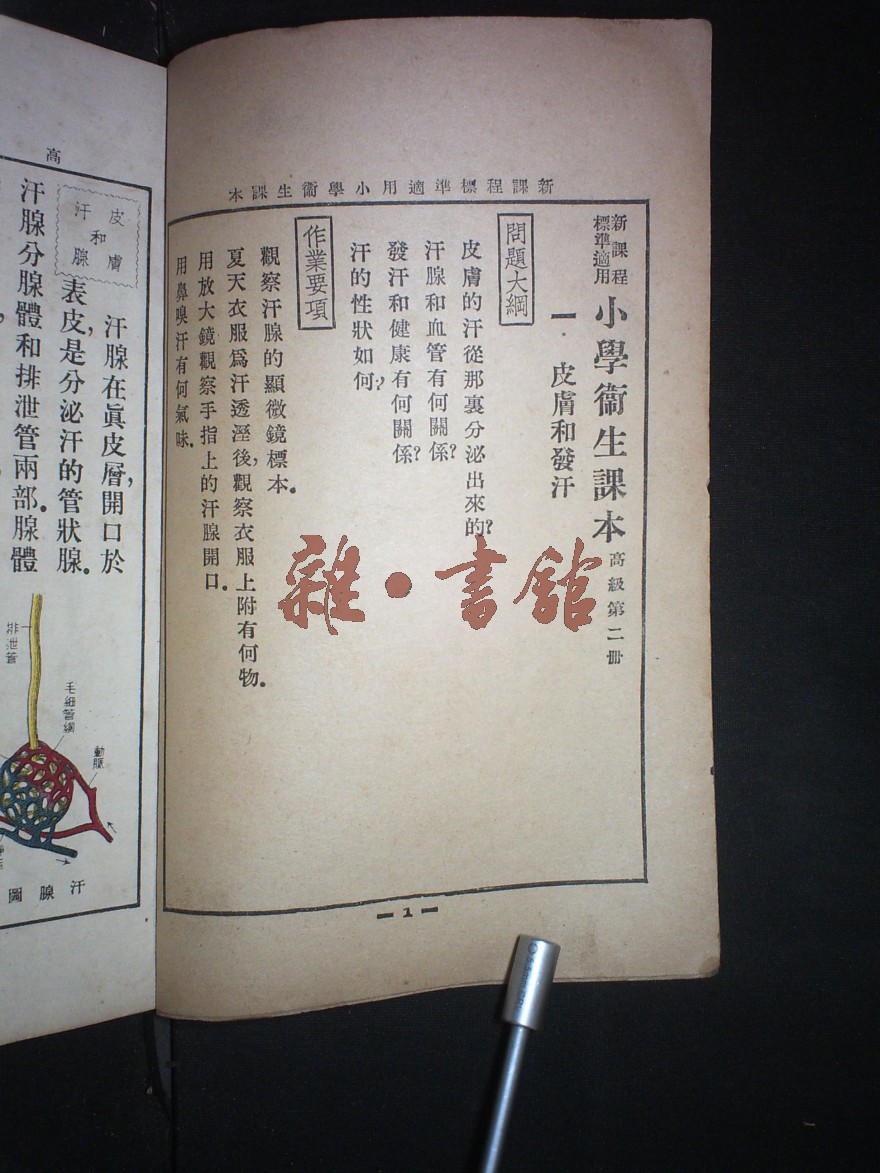 新課程標準適用小學衞生課本
新課程
標準適用
小學衞生課本 高級第二冊
一. 皮膚和發汗
問題大綱
皮膚的汗從那裏分泌出來的?
汗腺和血管有何關係?
發汗和健康有何關係?
汗的性狀如何?
作業要項
觀察汗腺的顯微鏡標本.
夏天衣服爲汗透溼後,觀察衣服上附有何物.
用放大鏡觀察手指上的汗腺開口.
用鼻嗅汗有何氣味.
1
雜·書館
高
皮膚
和
汗腺
汗腺在眞皮層,開口於
表皮,是分泌汗的管狀腺.
汗腺分腺體和排泄管兩部.腺體
排泄管
毛細管網
動脈
汗腺圖